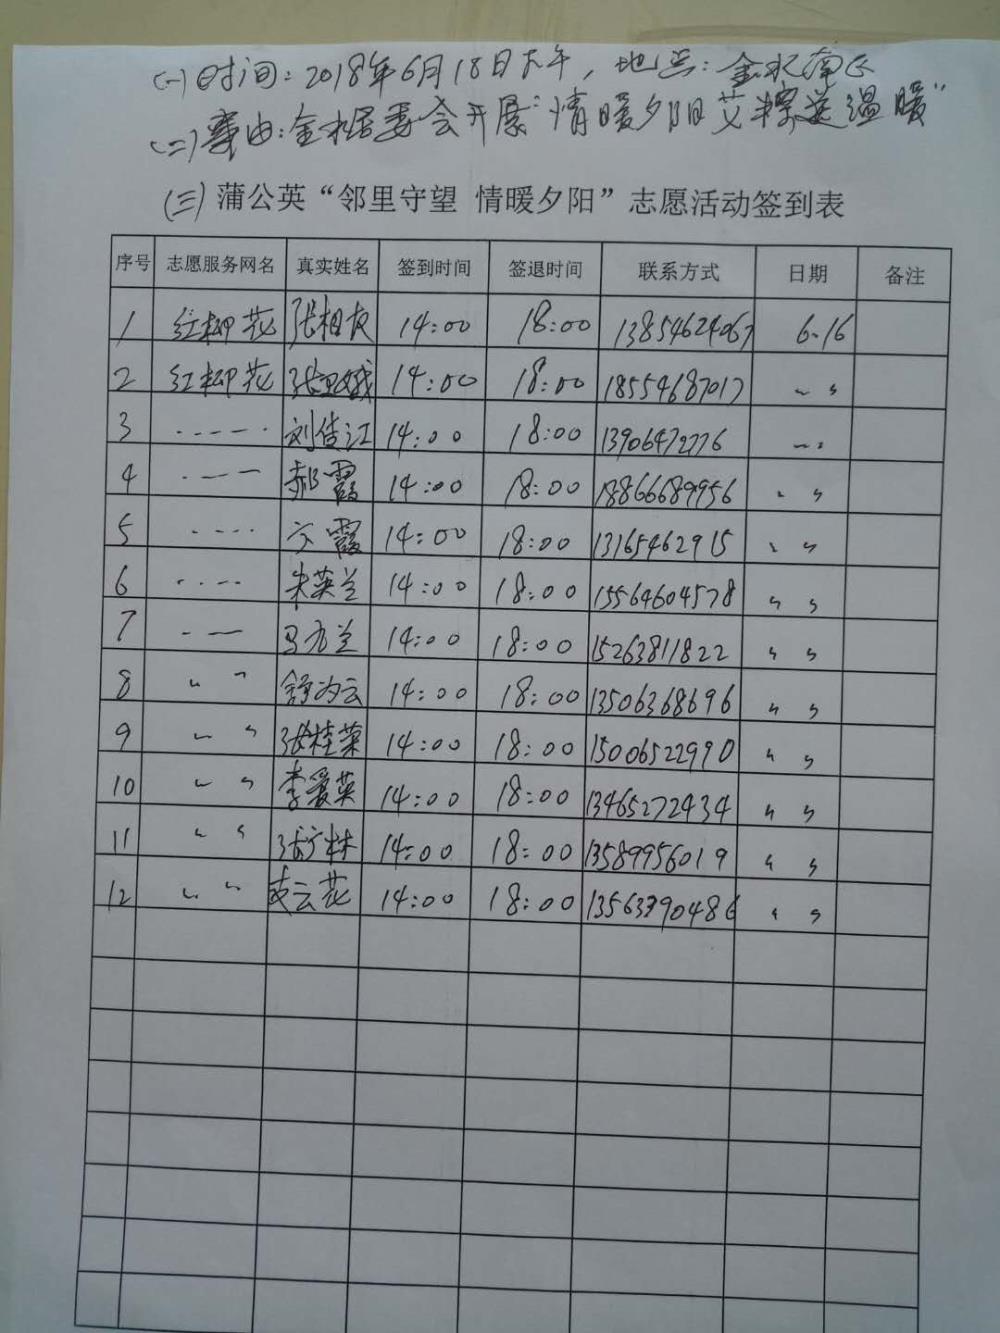 (一)时间：2018年6月18日下午，地点：金水南区
(二)事由：金水居委会开展“情暖夕阳艾粽送温暖”
(三)蒲公英“邻里守望 情暖夕阳”志愿活动签到表
序号 志愿服务网名 真实姓名 签到时间 签退时间 联系方式 日期 备注
1 红柳花 张相友 14:00 18:00 13854624067 6.16
2 红柳花 张卫娥 14:00 18:00 18554687017 〃
3 刘佳江 14:00 18:00 13906472776 〃
4 郝霞 14:00 18:00 18866689956 〃
5 方霞 14:00 18:00 13165462915 〃
6 朱英兰 14:00 18:00 15564604578 〃
7 马九兰 14:00 18:00 15263811822 〃
8 〃 舒为云 14:00 18:00 13506368696 〃
9 〃 张桂菜 14:00 18:00 15006522990 〃
10 〃 李爱英 14:00 18:00 13465272434 〃
11 〃 14:00 18:00 13589956019 〃
12 〃 云花 14:00 18:00 13563790486 〃